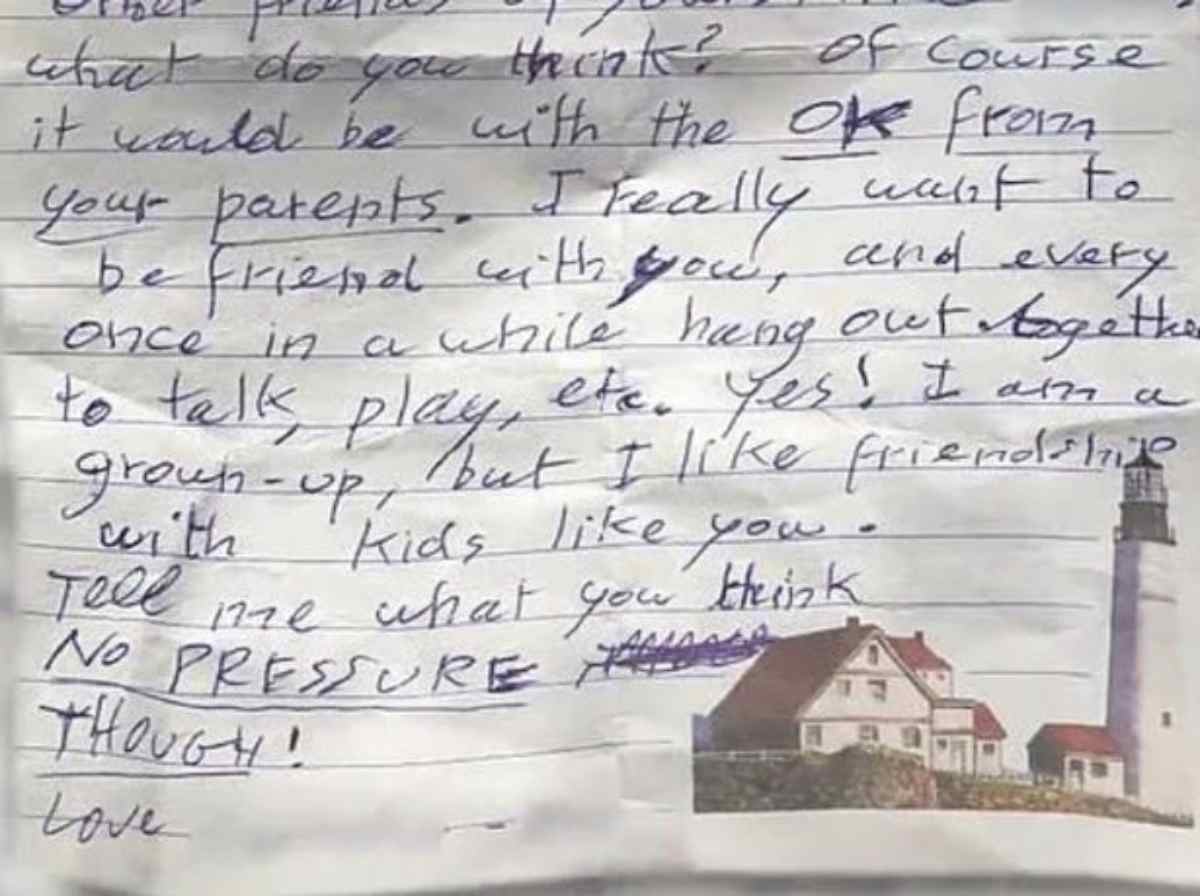 other friends of yours.
what do you think? Of course
it would be with the OK from
your parents. I really want to
be friend with you, and every
once in a while hang out together
to talk, play, etc. Yes! I am a
grown-up, but I like friendship
with kids like you.
Tell me what you think
NO PRESSURE
THOUGH!
Love